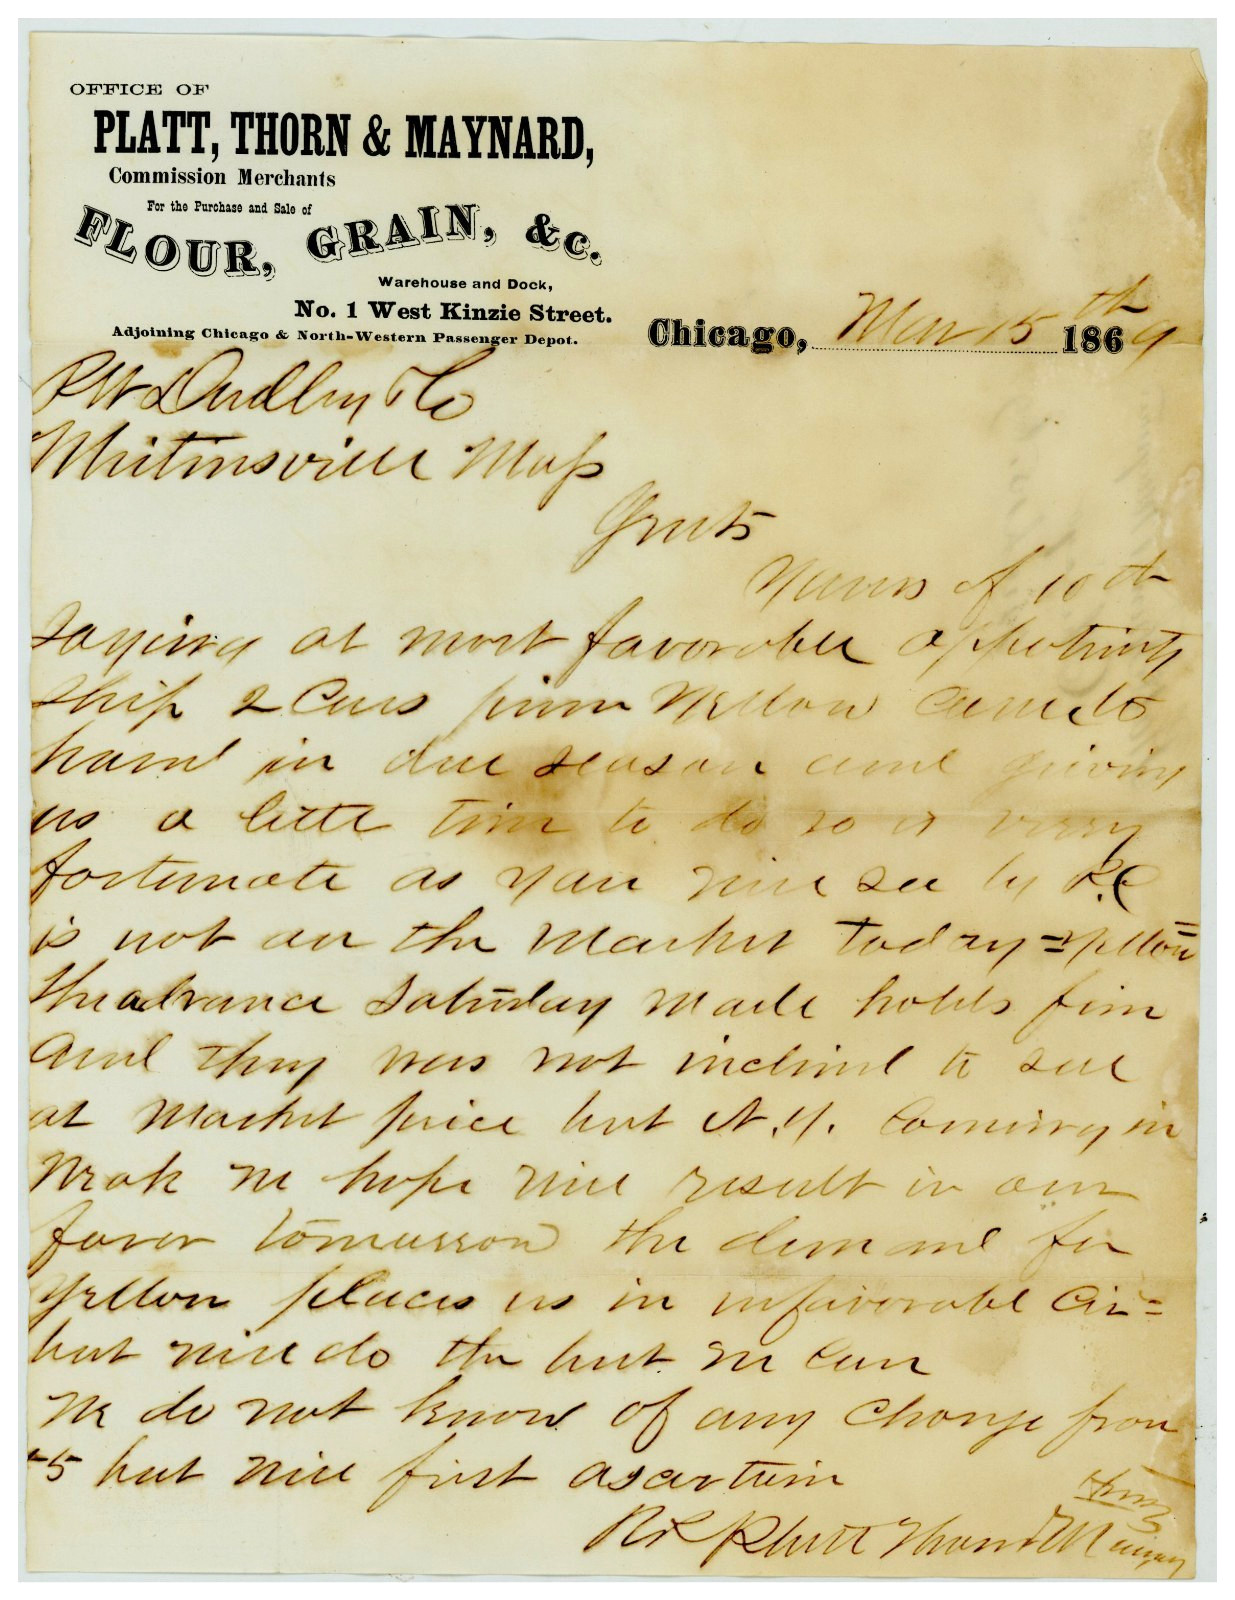 OFFICE OF
PLATT, THORN & MAYNARD,
Commission Merchants
For the Purchase and Sale of
FLOUR, GRAIN, &c.
Warehouse and Dock,
No. 1 West Kinzie Street.
Adjoining Chicago & North-Western Passenger Depot.
Chicago, Mar 15th 1869
P W Dudley & Co
Whitinsville Mass
Gents
Yours of 10th
saying at most favorable oppotunity
ship 2 Cars prime Yellow Came to
hand in due season and giving
us a little time to do so is very
fortunate as you will see by P.C
is not on the Market today = Yellow =
the advance Saturday Made holds firm
And they was not inclined to sell
at Market price but N.Y. Coming in
Weak we hope will result in our
favor tomorrow the demand for
Yellow places us in unfavorable Cir=
but will do the best we can
We do not know of any Change from
55 but will first ascertain
Platt Thorn & Maynard